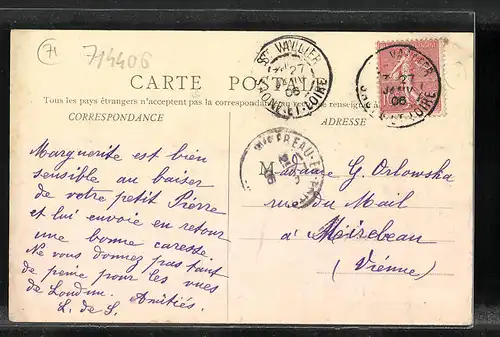 71
714406
ST VALLIER
27
JANV
06
SAONE-ET-LOIRE
VALLIER
27
JANV
06
SAONE-ET-LOIRE
CARTE POSTALE
Tous les pays étrangers n'acceptent pas la correspondance au recto se renseigner à
CORRESPONDANCE
ADRESSE
Marguerite est bien
sensible au baiser
de votre petit Pierre
et lui envoie en retour
une bonne caresse
Ne vous donnez pas tant
de peine pour les vues
de Loudun. Amitiés.
L. de S.
Madame G. Orlowska
rue du Mail
à Mirebeau
(Vienne)